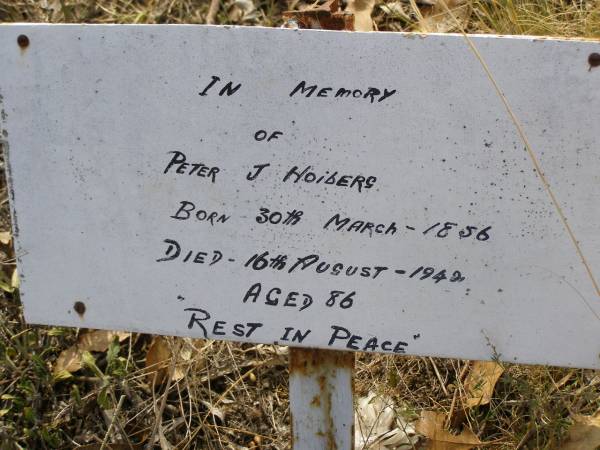 IN MEMORY
OF
PETER J HOIBERG
BORN 30th MARCH - 1856
DIED - 16th AUGUST - 1942
AGED 86
"REST IN PEACE"